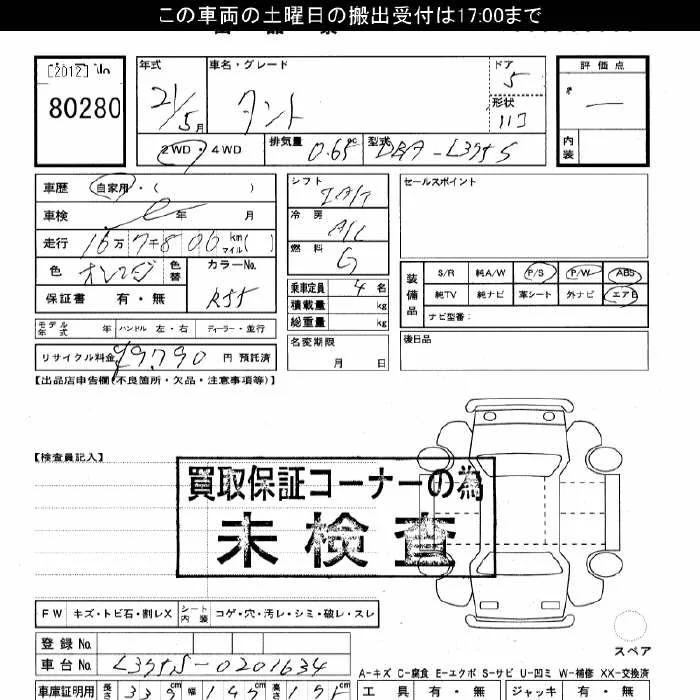 この車両の土曜日の搬出受付は17:00まで
[2012] No
80280
年式 21/5月
車名・グレード タント
ドア 5
形状
評価点
内装
2WD・4WD
排気量 0.65 cc
型式 DBA-L375S
車歴 自家用・( )
車検 年 月
走行 16万7千806 km マイル( )
色 オレンジ 色替
カラーNo. R55
保証書 有・無
シフト IAT
冷房 A/C
燃料 G
乗車定員 4 名
積載量 kg
総重量 kg
セールスポイント
装備品
S/R 純A/W P/S P/W ABS
純TV 純ナビ 革シート 外ナビ エアB
ナビ型番:
モデル年式 年 ハンドル 左・右 ディーラー・並行
名変期限
月 日
後日品
リサイクル料金 ¥9,790 円 預託済
【出品店申告欄(不良箇所・欠品・注意事項等)】
【検査員記入】
買取保証コーナーの為
未検査
FW キズ・トビ石・割レX シート内装 コゲ・穴・汚レ・シミ・破レ・スレ
スペア
登録No.
車台No. L375S-0201634
A-キズ C-腐食 E-エクボ S-サビ U-凹ミ W-補修 XX-交換済
車庫証明用 長さ 339 cm 幅 147 cm 高さ 175 cm
工具 有・無 ジャッキ 有・無